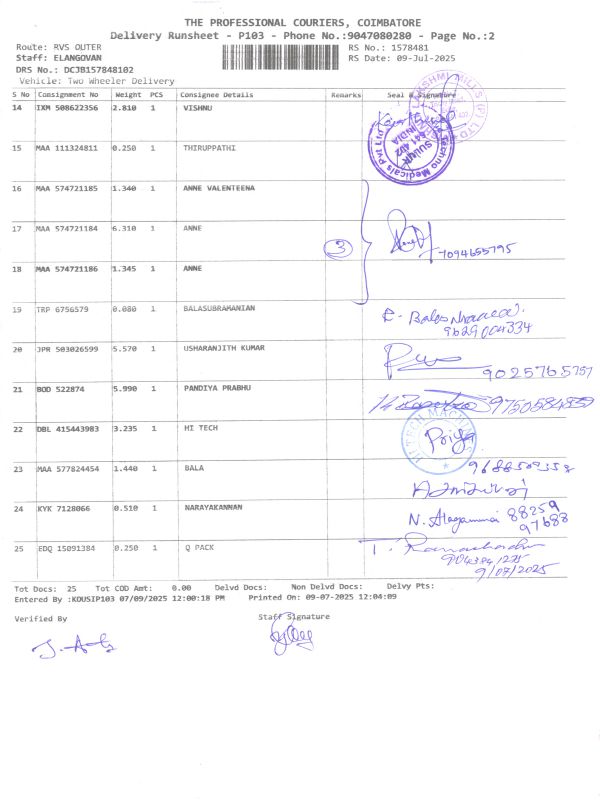 THE PROFESSIONAL COURIERS, COIMBATORE
Delivery Runsheet - P103 - Phone No.:9047080280 - Page No.:2
Route: RVS OUTER RS No.: 1578481
Staff: ELANGOVAN RS Date: 09-Jul-2025
DRS No.: DCJB157848102
Vehicle: Two Wheeler Delivery
S No Consignment No Weight PCS Consignee Details Remarks Seal & Signature
14 IXM 508622356 2.810 1 VISHNU
LAKSHMI MILLS (P) LTD
Techno Medicals Pvt Ltd
SULUR
641 402
INDIA
15 MAA 111324811 0.250 1 THIRUPPATHI
16 MAA 574721185 1.340 1 ANNE VALENTEENA
17 MAA 574721184 6.310 1 ANNE
3 7094655795
18 MAA 574721186 1.345 1 ANNE
19 TRP 6756579 0.080 1 BALASUBRAMANIAN
9629004334
20 JPR 503026599 5.570 1 USHARANJITH KUMAR
9025765757
21 BOD 522874 5.990 1 PANDIYA PRABHU
22 DBL 415443983 3.235 1 HI TECH
HI TECH MACHINES
Priya
23 MAA 577824454 1.440 1 BALA
24 KYK 7128066 0.510 1 NARAYAKANNAN
N. Alagammai 88259
97688
25 EDQ 15091384 0.250 1 Q PACK
9/07/2025
Tot Docs: 25 Tot COD Amt: 0.00 Delvd Docs: Non Delvd Docs: Delvy Pts:
Entered By :KOUSIP103 07/09/2025 12:00:18 PM Printed On: 09-07-2025 12:04:09
Verified By Staff Signature